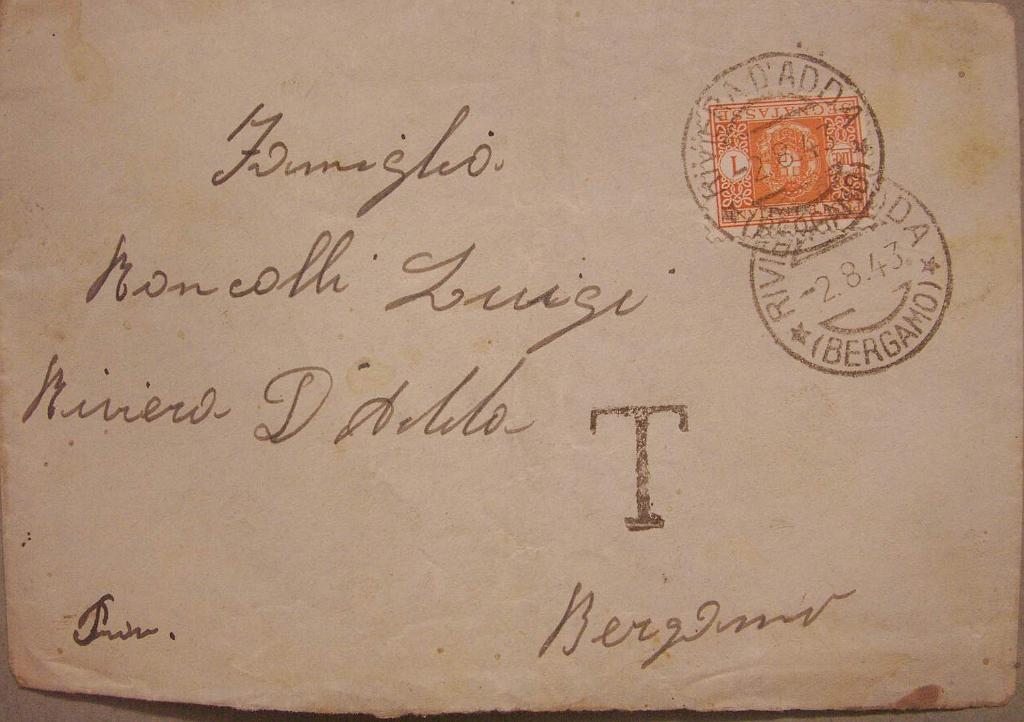 Famiglia
Roncolli Luigi
Riviera D'Adda
Prov. Bergamo
T
SEGNATASSE
1
RIVIERA D'ADDA
2.8.4
(BERGAMO)
RIVIERA D'ADDA
-2.8.43.
(BERGAMO)